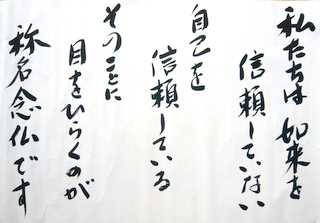 私たちは 如来を
信頼していない
自己を
信頼している
そのことに
目をひらくのが
称名念仏です